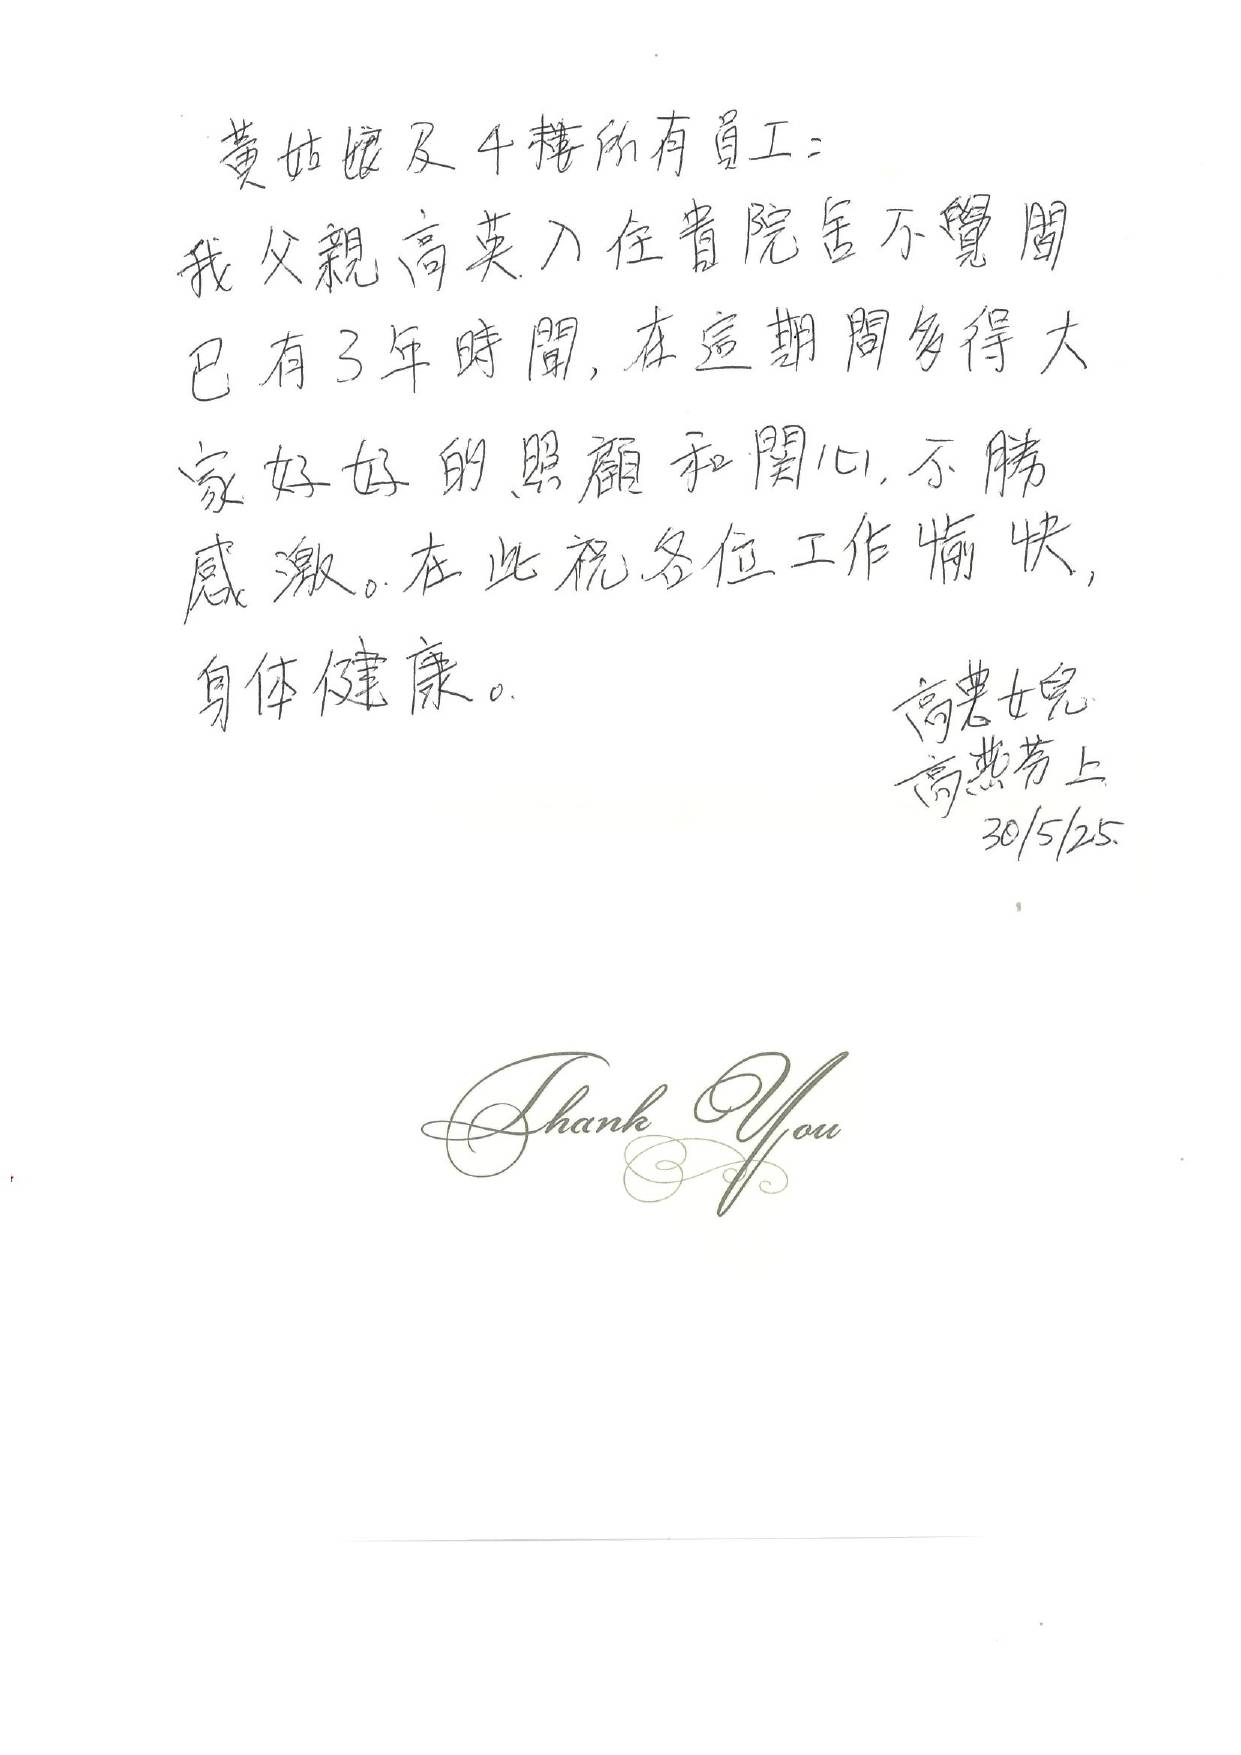 黃姑娘及4樓所有員工:
我父親高英入住貴院舍不覺間
已有3年時間,在這期間多得大
家好好的照顧和関心,不勝
感激。在此祝各位工作愉快,
身体健康。
高英女兒
高燕芳上
30/5/25
Thank You